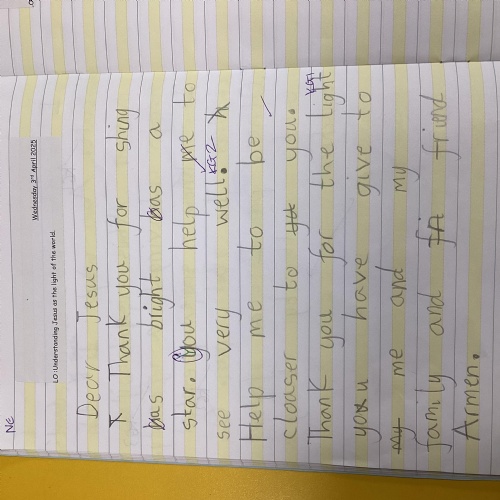 Wednesday 3rd April 2025
LO: Understanding Jesus as the light of the world.
Dear Jesus
Thank you for shing
as blight as a
star. you help me to
see very well. KG2
Help me to be
cloaser to you.
Thank you for the light KG1
you have give to
My me and my
family and fri friend
Armen.